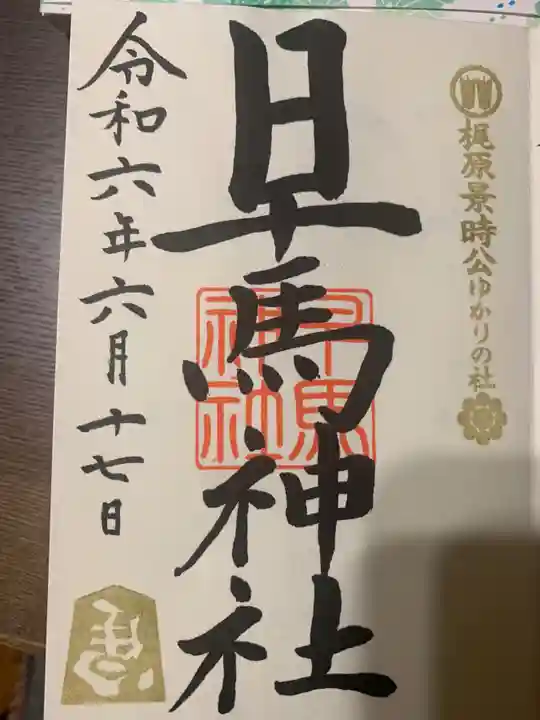 梶原景時公ゆかりの社
早馬神社
早馬
神社
令和六年六月十七日
馬